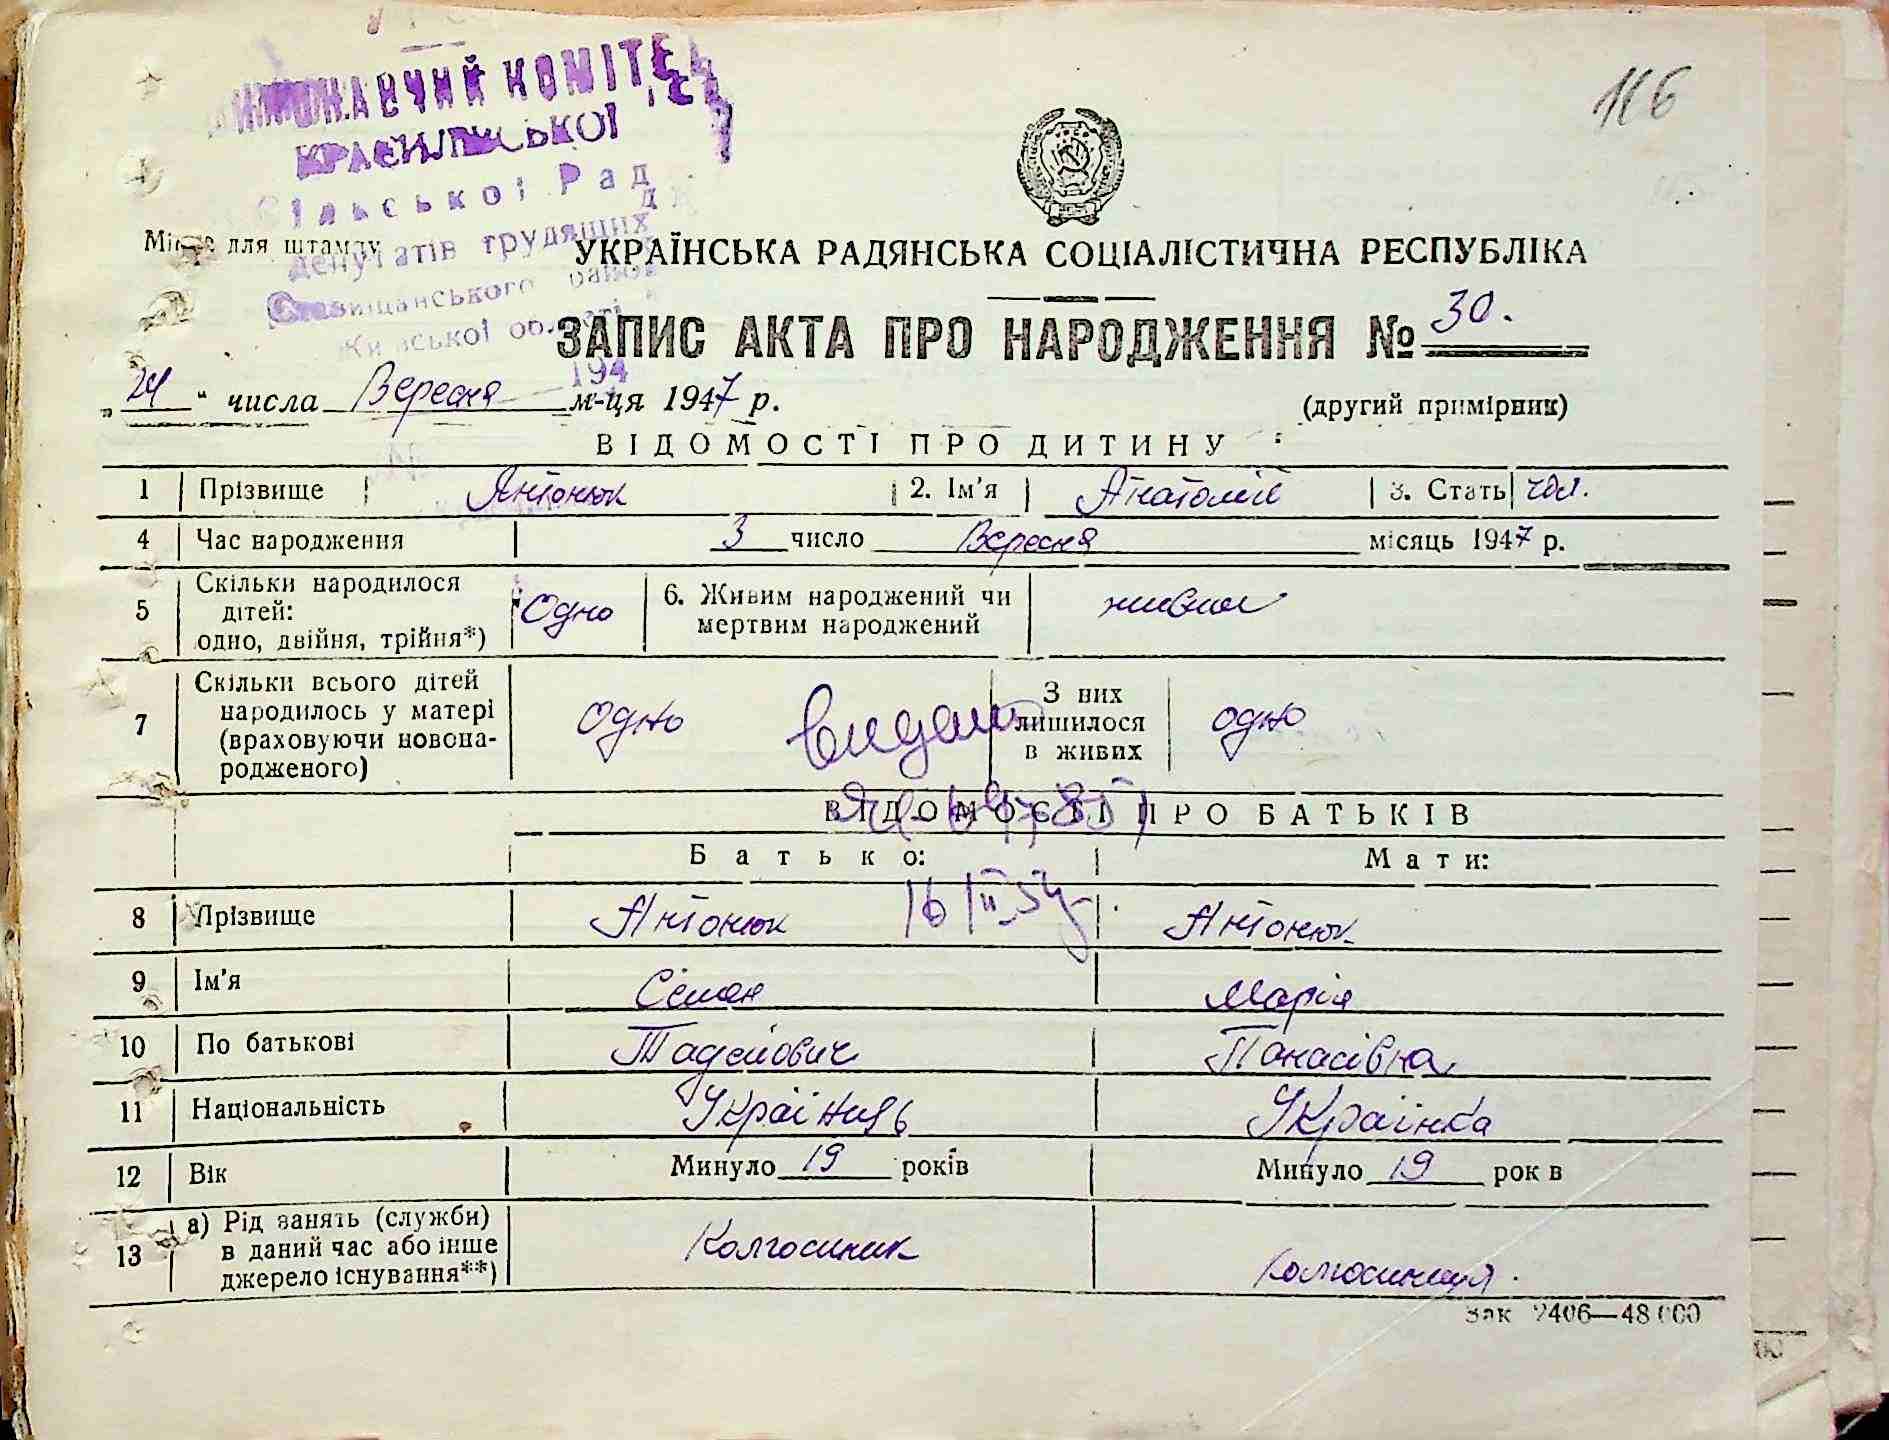 116
ВИКОНАВЧИЙ КОМІТЕТ
КРАСИЛІВСЬКОЇ
Сільської Рад
депутатів трудящих
Ставищанського району
Київської області
194
Місце для штампу
УКРАЇНСЬКА РАДЯНСЬКА СОЦІАЛІСТИЧНА РЕСПУБЛІКА
ЗАПИС АКТА ПРО НАРОДЖЕННЯ № 30.
„24“ числа Вересня м-ця 1947 р.
(другий примірник)
ВІДОМОСТІ ПРО ДИТИНУ
1 Прізвище Антонюк 2. Ім'я Анатолій 3. Стать чол.
4 Час народження 3 число Вересня місяць 1947 р.
5 Скільки народилося дітей: одно, двійня, трійня*) Одно 6. Живим народжений чи мертвим народжений живим
7 Скільки всього дітей народилось у матері (враховуючи новонародженого) одно З них лишилося в живих одно
видано
16/II.54
ВІДОМОСТІ ПРО БАТЬКІВ
Батько: Мати:
8 Прізвище Антонюк Антонюк
9 Ім'я Сёман Марія
10 По батькові Тадейович Панасівна
11 Національність Українець Українка
12 Вік Минуло 19 років Минуло 19 років
13 а) Рід занять (служби) в даний час або інше джерело існування**) Колгоспник Колгоспниця.
Зак 2406—48000